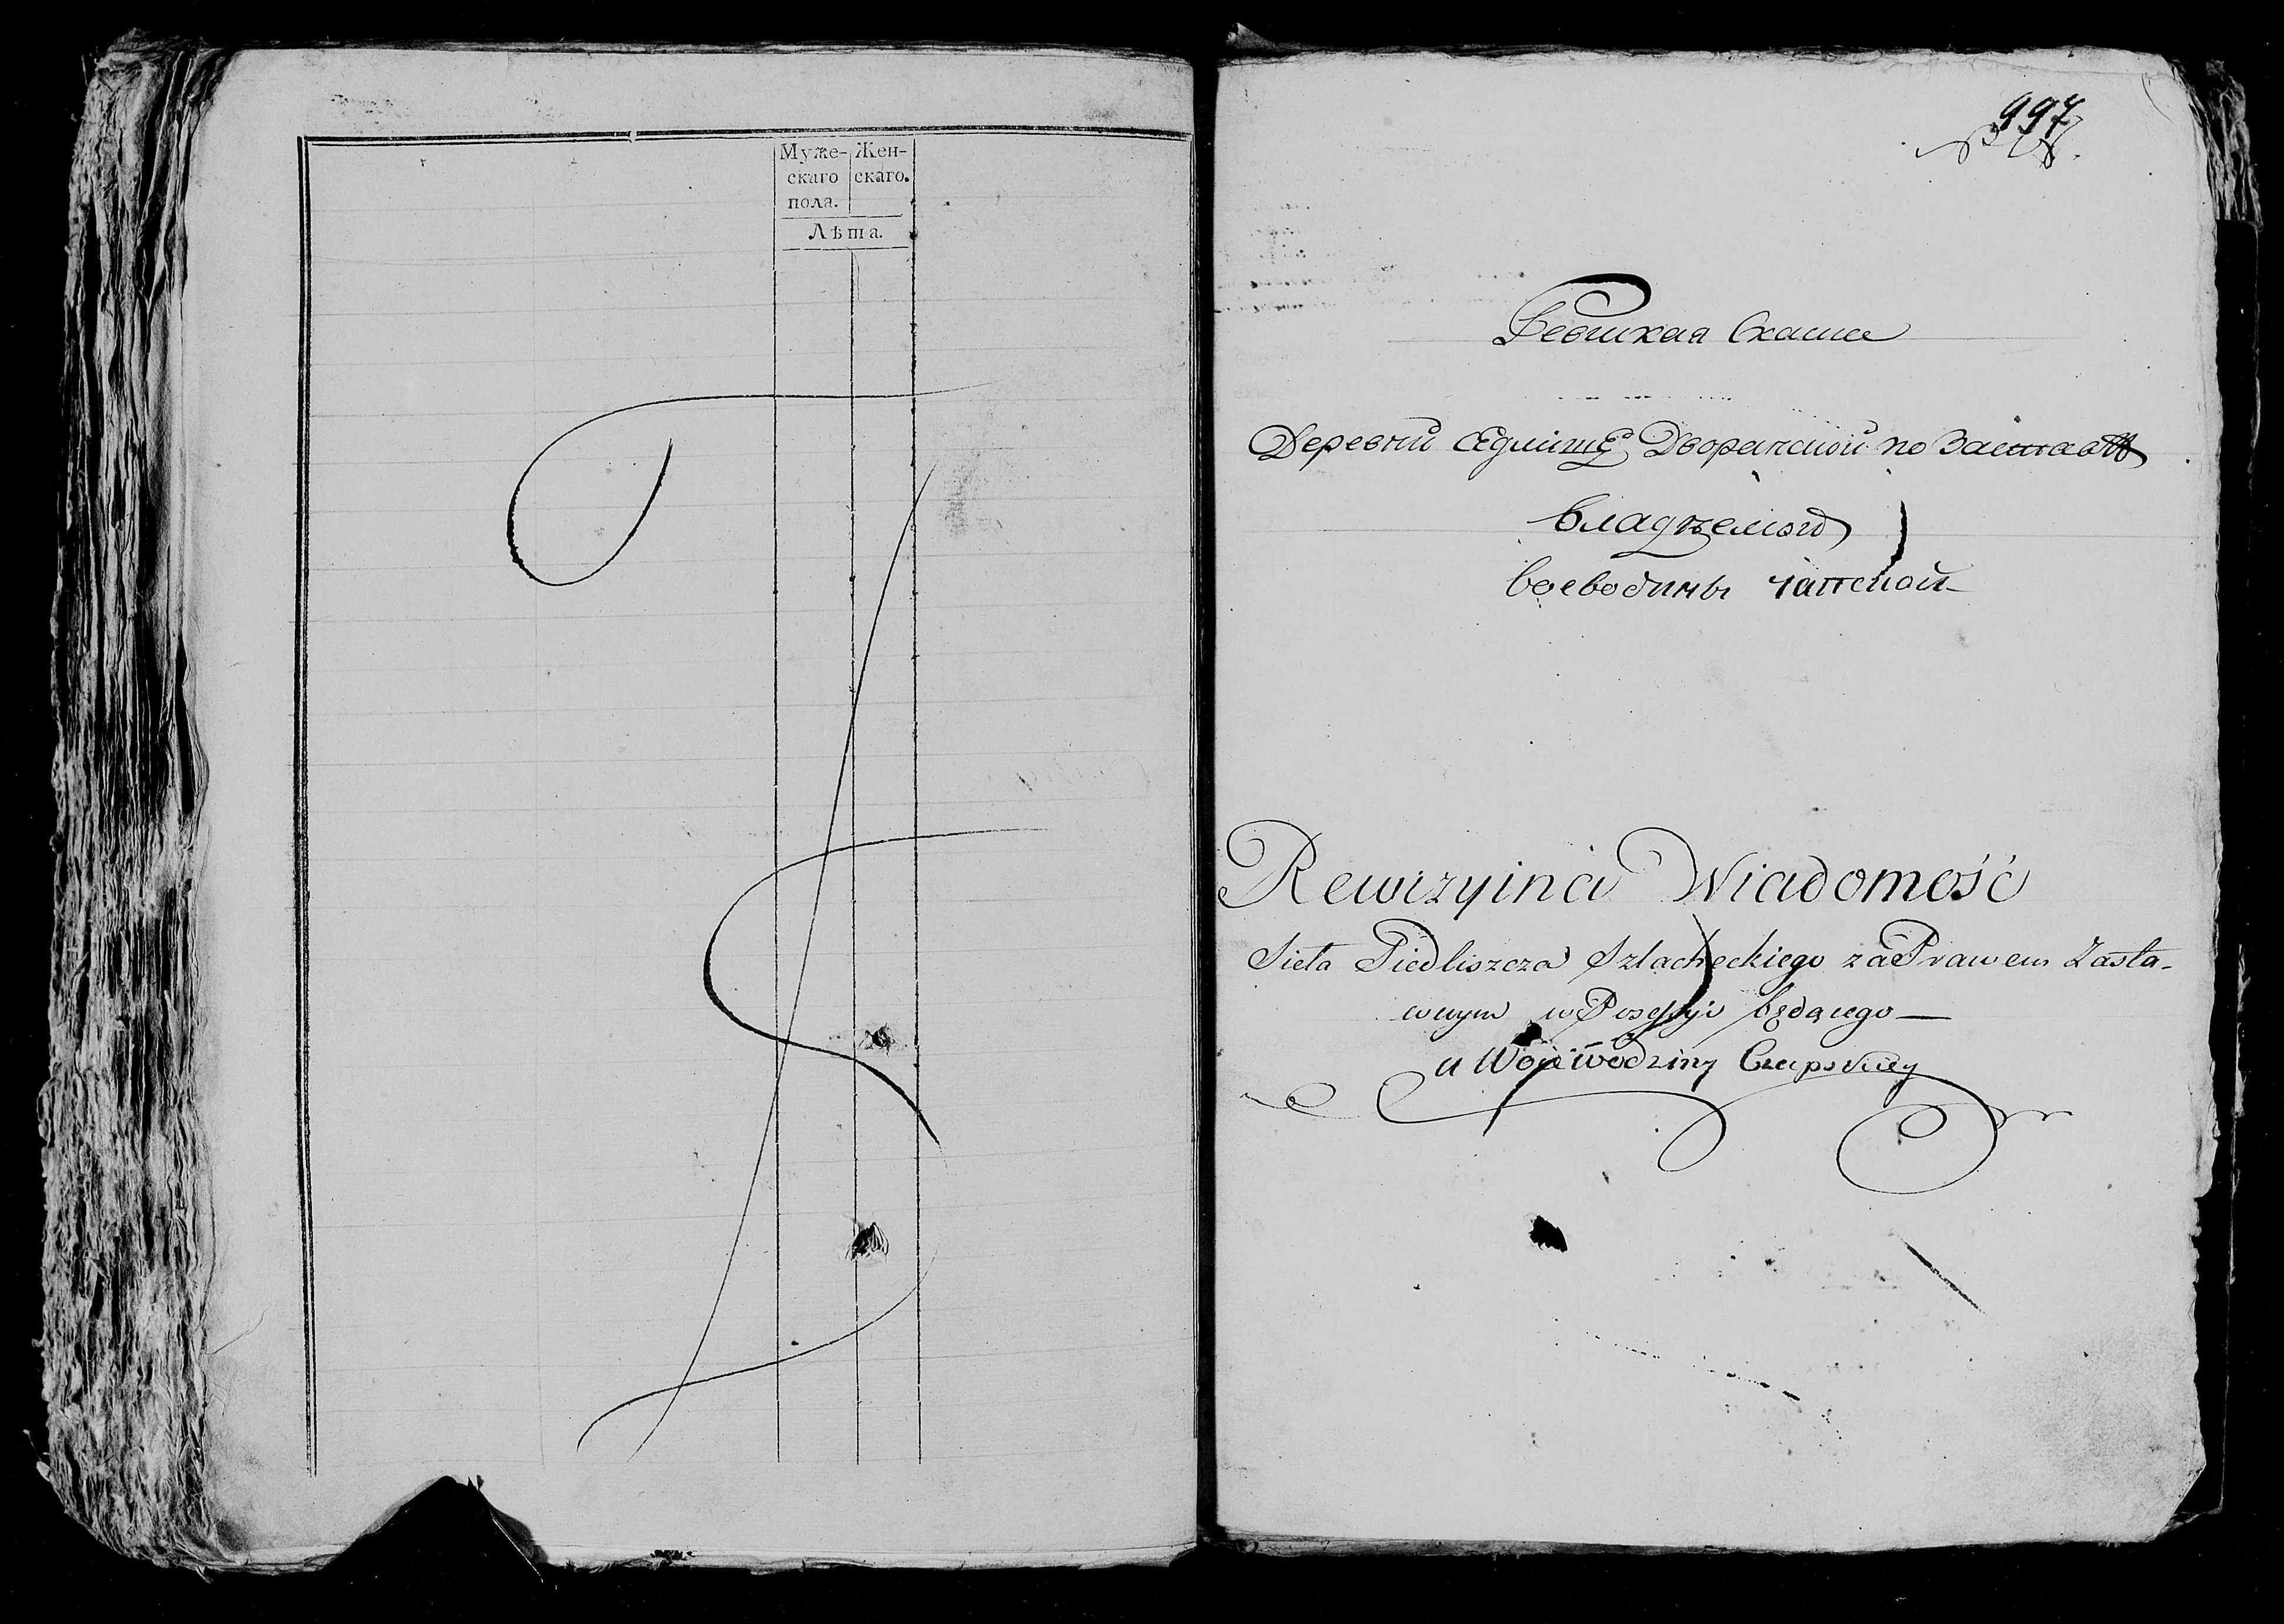 Муже- Жен-
скаго скаго.
пола.
Лѣта.
997
Ревизкая Сказка
Деревни Седлищ Дворанской по Заставѣ
владѣемой
воеводины чапской
Rewizyina Wiadomość
Sieła Siedliszcza Szlacheckiego za Prawem Zasta-
wnym w Posessyi będącego —
u Wojewodziny Czapskiey